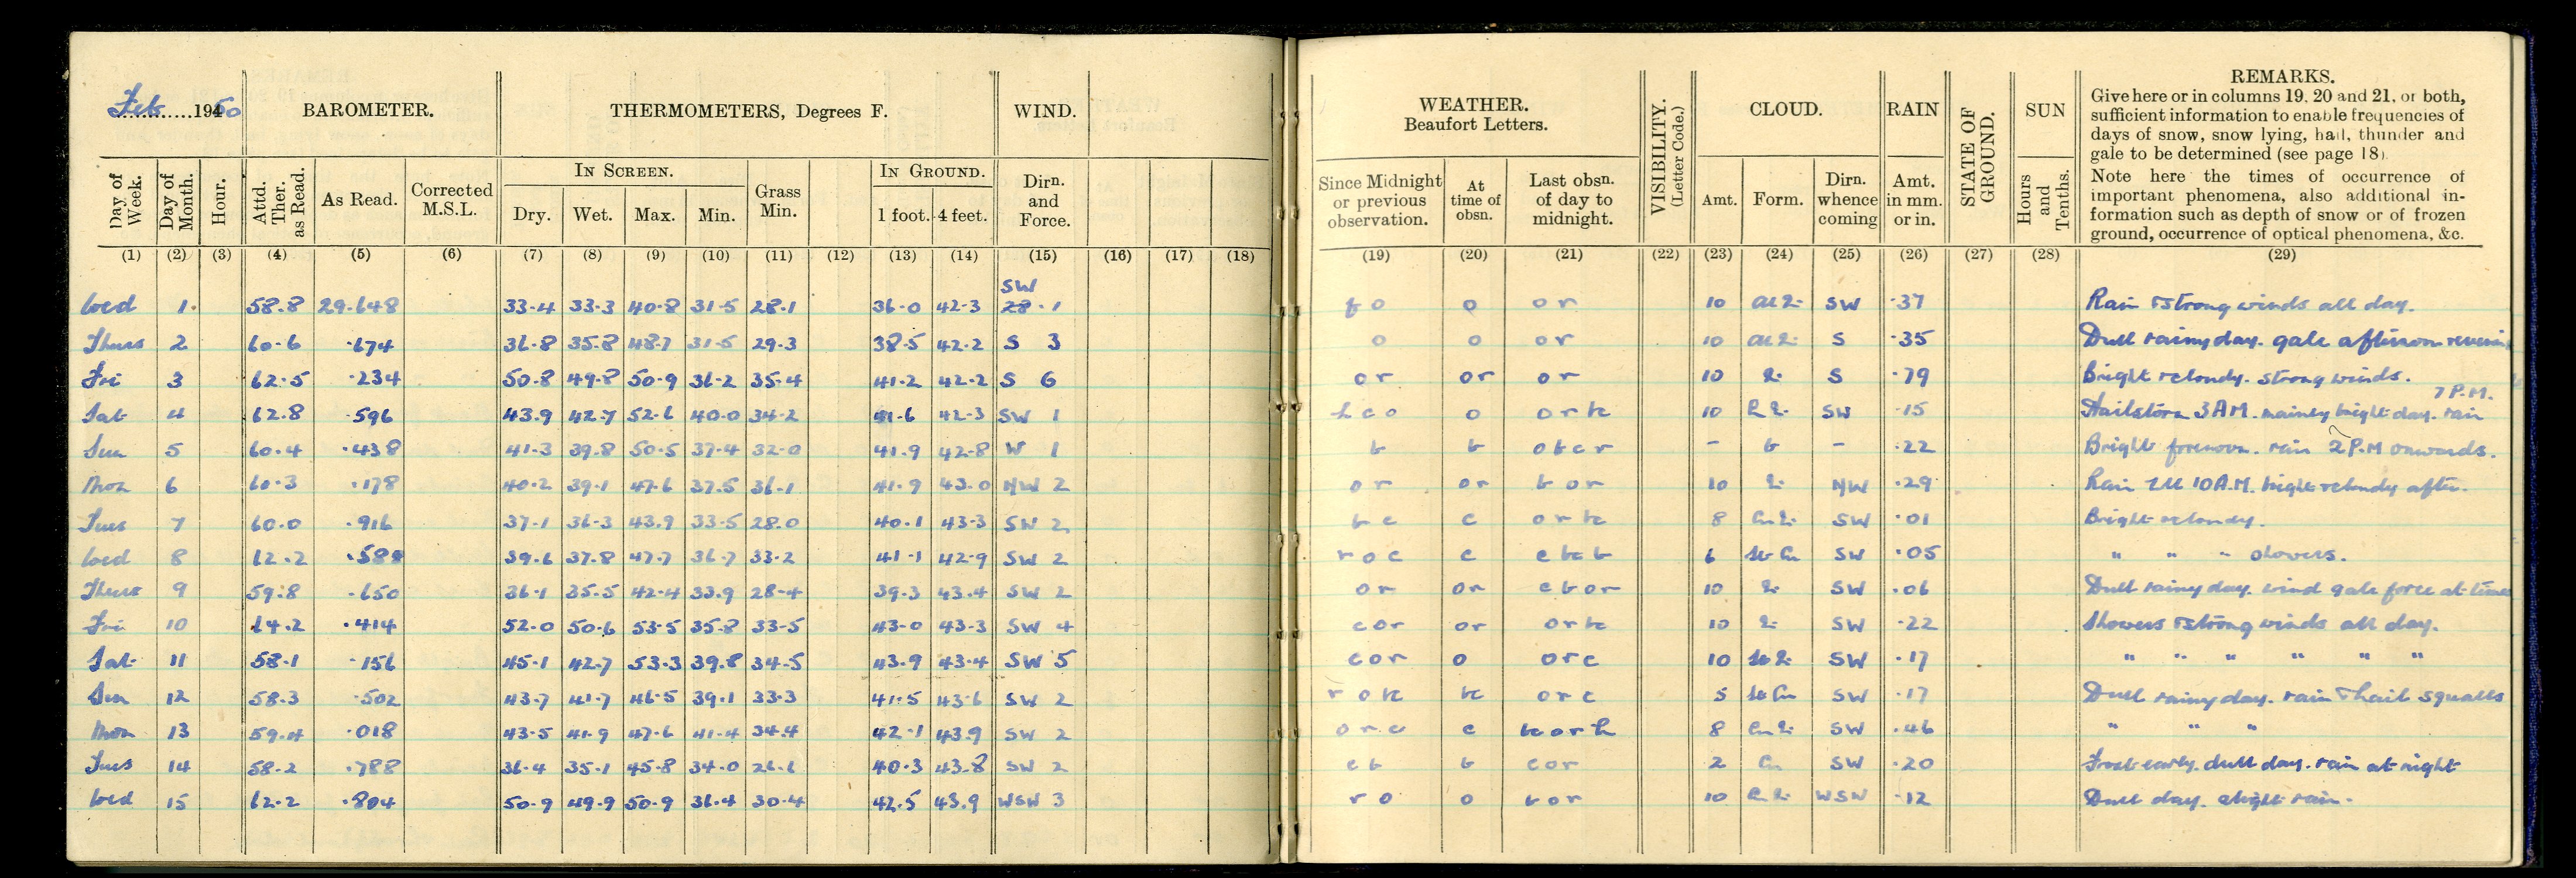 Feb 1950 BAROMETER. THERMOMETERS, Degrees F. WIND. WEATHER. Beaufort Letters. VISIBILITY. (Letter Code.) CLOUD. RAIN STATE OF GROUND. SUN REMARKS.
Give here or in columns 19, 20 and 21, or both,
sufficient information to enable frequencies of
days of snow, snow lying, hail, thunder and
gale to be determined (see page 18).
Note here the times of occurrence of
important phenomena, also additional in-
formation such as depth of snow or of frozen
ground, occurrence of optical phenomena, &c.
Day of Week. Day of Month. Hour. Attd. Ther. as Read. As Read. Corrected M.S.L. IN SCREEN. Dry. Wet. Max. Min. Grass Min. IN GROUND. 1 foot. 4 feet. Dirn. and Force. Since Midnight or previous observation. At time of obsn. Last obsn. of day to midnight. Amt. Form. Dirn. whence coming Amt. in mm. or in. Hours and Tenths.
(1) (2) (3) (4) (5) (6) (7) (8) (9) (10) (11) (12) (13) (14) (15) (16) (17) (18) (19) (20) (21) (22) (23) (24) (25) (26) (27) (28) (29)
SW
Wed 1. 58.8 29.648 33.4 33.3 40.8 31.5 28.1 36.0 42.3 28.1 f o o o r 10 SW .37 Rain & strong winds all day.
Thurs 2 60.6 .674 36.8 35.8 48.7 31.5 29.3 38.5 42.2 S 3 o o o r 10 S .35 Dull rainy day. gale afternoon & evening
Fri 3 62.5 .234 50.8 49.8 50.9 36.2 35.4 41.2 42.2 S 6 o r o r o r 10 S .79 Bright & cloudy. strong winds.
7 P.M.
Sat 4 62.8 .596 43.9 42.7 52.6 40.0 34.2 41.6 42.3 SW 1 h c o o o r bc 10 SW .15 Hailstorm 3 AM. mainly bright day. rain
Sun 5 60.4 .438 41.3 39.8 50.5 37.4 32.0 41.9 42.8 W 1 b b o b c r - b - .22 Bright forenoon. rain 2 P.M onwards.
Mon 6 60.3 .178 40.2 39.1 47.6 37.5 36.1 41.9 43.0 NW 2 o r o r b o r 10 NW .29 Rain till 10 A.M. bright & cloudy after.
Tues 7 60.0 .916 37.1 36.3 43.9 33.5 28.0 40.1 43.3 SW 2 b c c o r bc 8 SW .01 Bright & cloudy.
Wed 8 62.2 .588 39.6 37.8 47.7 36.7 33.2 41.1 42.9 SW 2 r o c c c bc b 6 St Cu SW .05 " " " showers.
Thurs 9 59.8 .650 36.1 35.5 42.4 33.9 28.4 39.3 43.4 SW 2 o r o r c b o r 10 SW .06 Dull rainy day. wind gale force at times
Fri 10 64.2 .414 52.0 50.6 53.5 35.8 33.5 43.0 43.3 SW 4 c o r o r o r bc 10 SW .22 Showers & strong winds all day.
Sat 11 58.1 .156 45.1 42.7 53.3 39.8 34.5 43.9 43.4 SW 5 c o r o o r c 10 SW .17 " " " " " "
Sun 12 58.3 .502 43.7 41.7 46.5 39.1 33.3 41.5 43.6 SW 2 r o bc bc o r c 5 St Cu SW .17 Dull rainy day. rain & hail squalls
Mon 13 59.4 .018 43.5 41.9 47.6 41.4 34.4 42.1 43.9 SW 2 o r c c bc o r h 8 SW .46 " " "
Tues 14 58.2 .788 36.4 35.1 45.8 34.0 26.6 40.3 43.8 SW 2 c b b c o r 2 Cu SW .20 Frost early. dull day. rain at night
Wed 15 62.2 .804 50.9 49.9 50.9 36.4 30.4 42.5 43.9 WSW 3 r o o b o r 10 WSW .12 Dull day. slight rain.